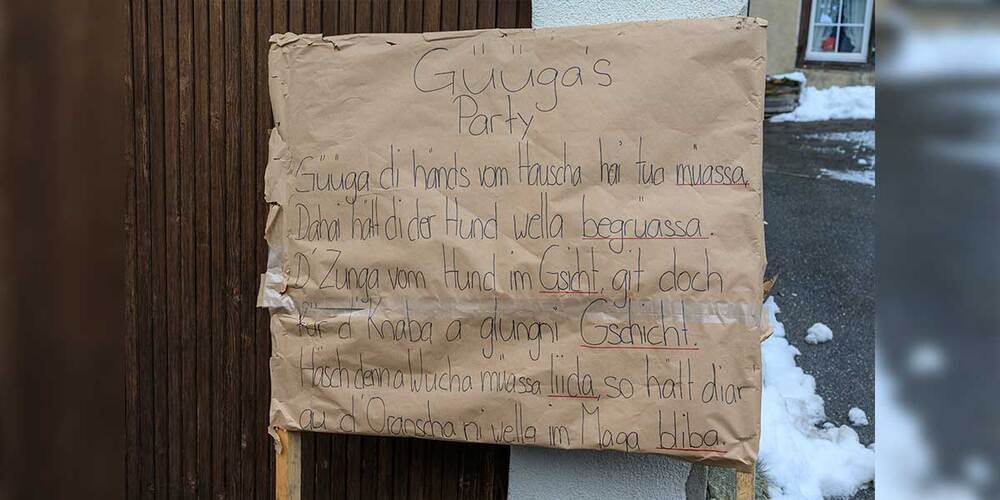 Güüga's
Party
Güüga di händs vom Hauscha hai tua müassa,
Dahai hätt di der Hund wella begrüassa.
D'Zunga vom Hund im Gsicht, git doch
für d'Knaba a glungni Gschicht.
Häsch denn a Wucha müassa liida, so hätt diar
au d'Oranscha ni wella im Maga bliba.